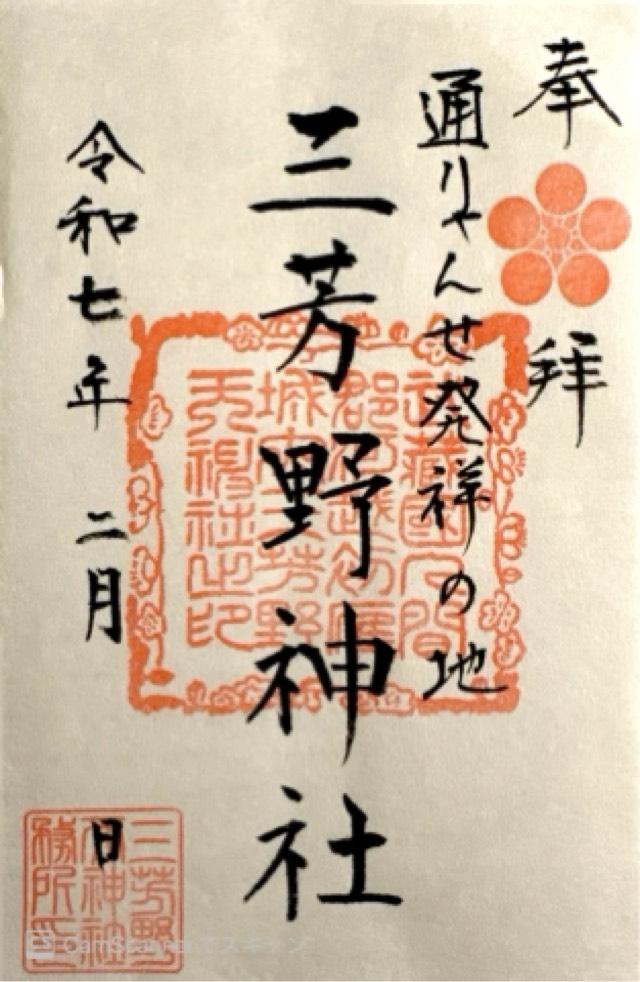 奉拝
通りゃんせ発祥の地
三芳野神社
令和七年 二月 日
三芳野
神社
務所印
CamScannerでスキャン